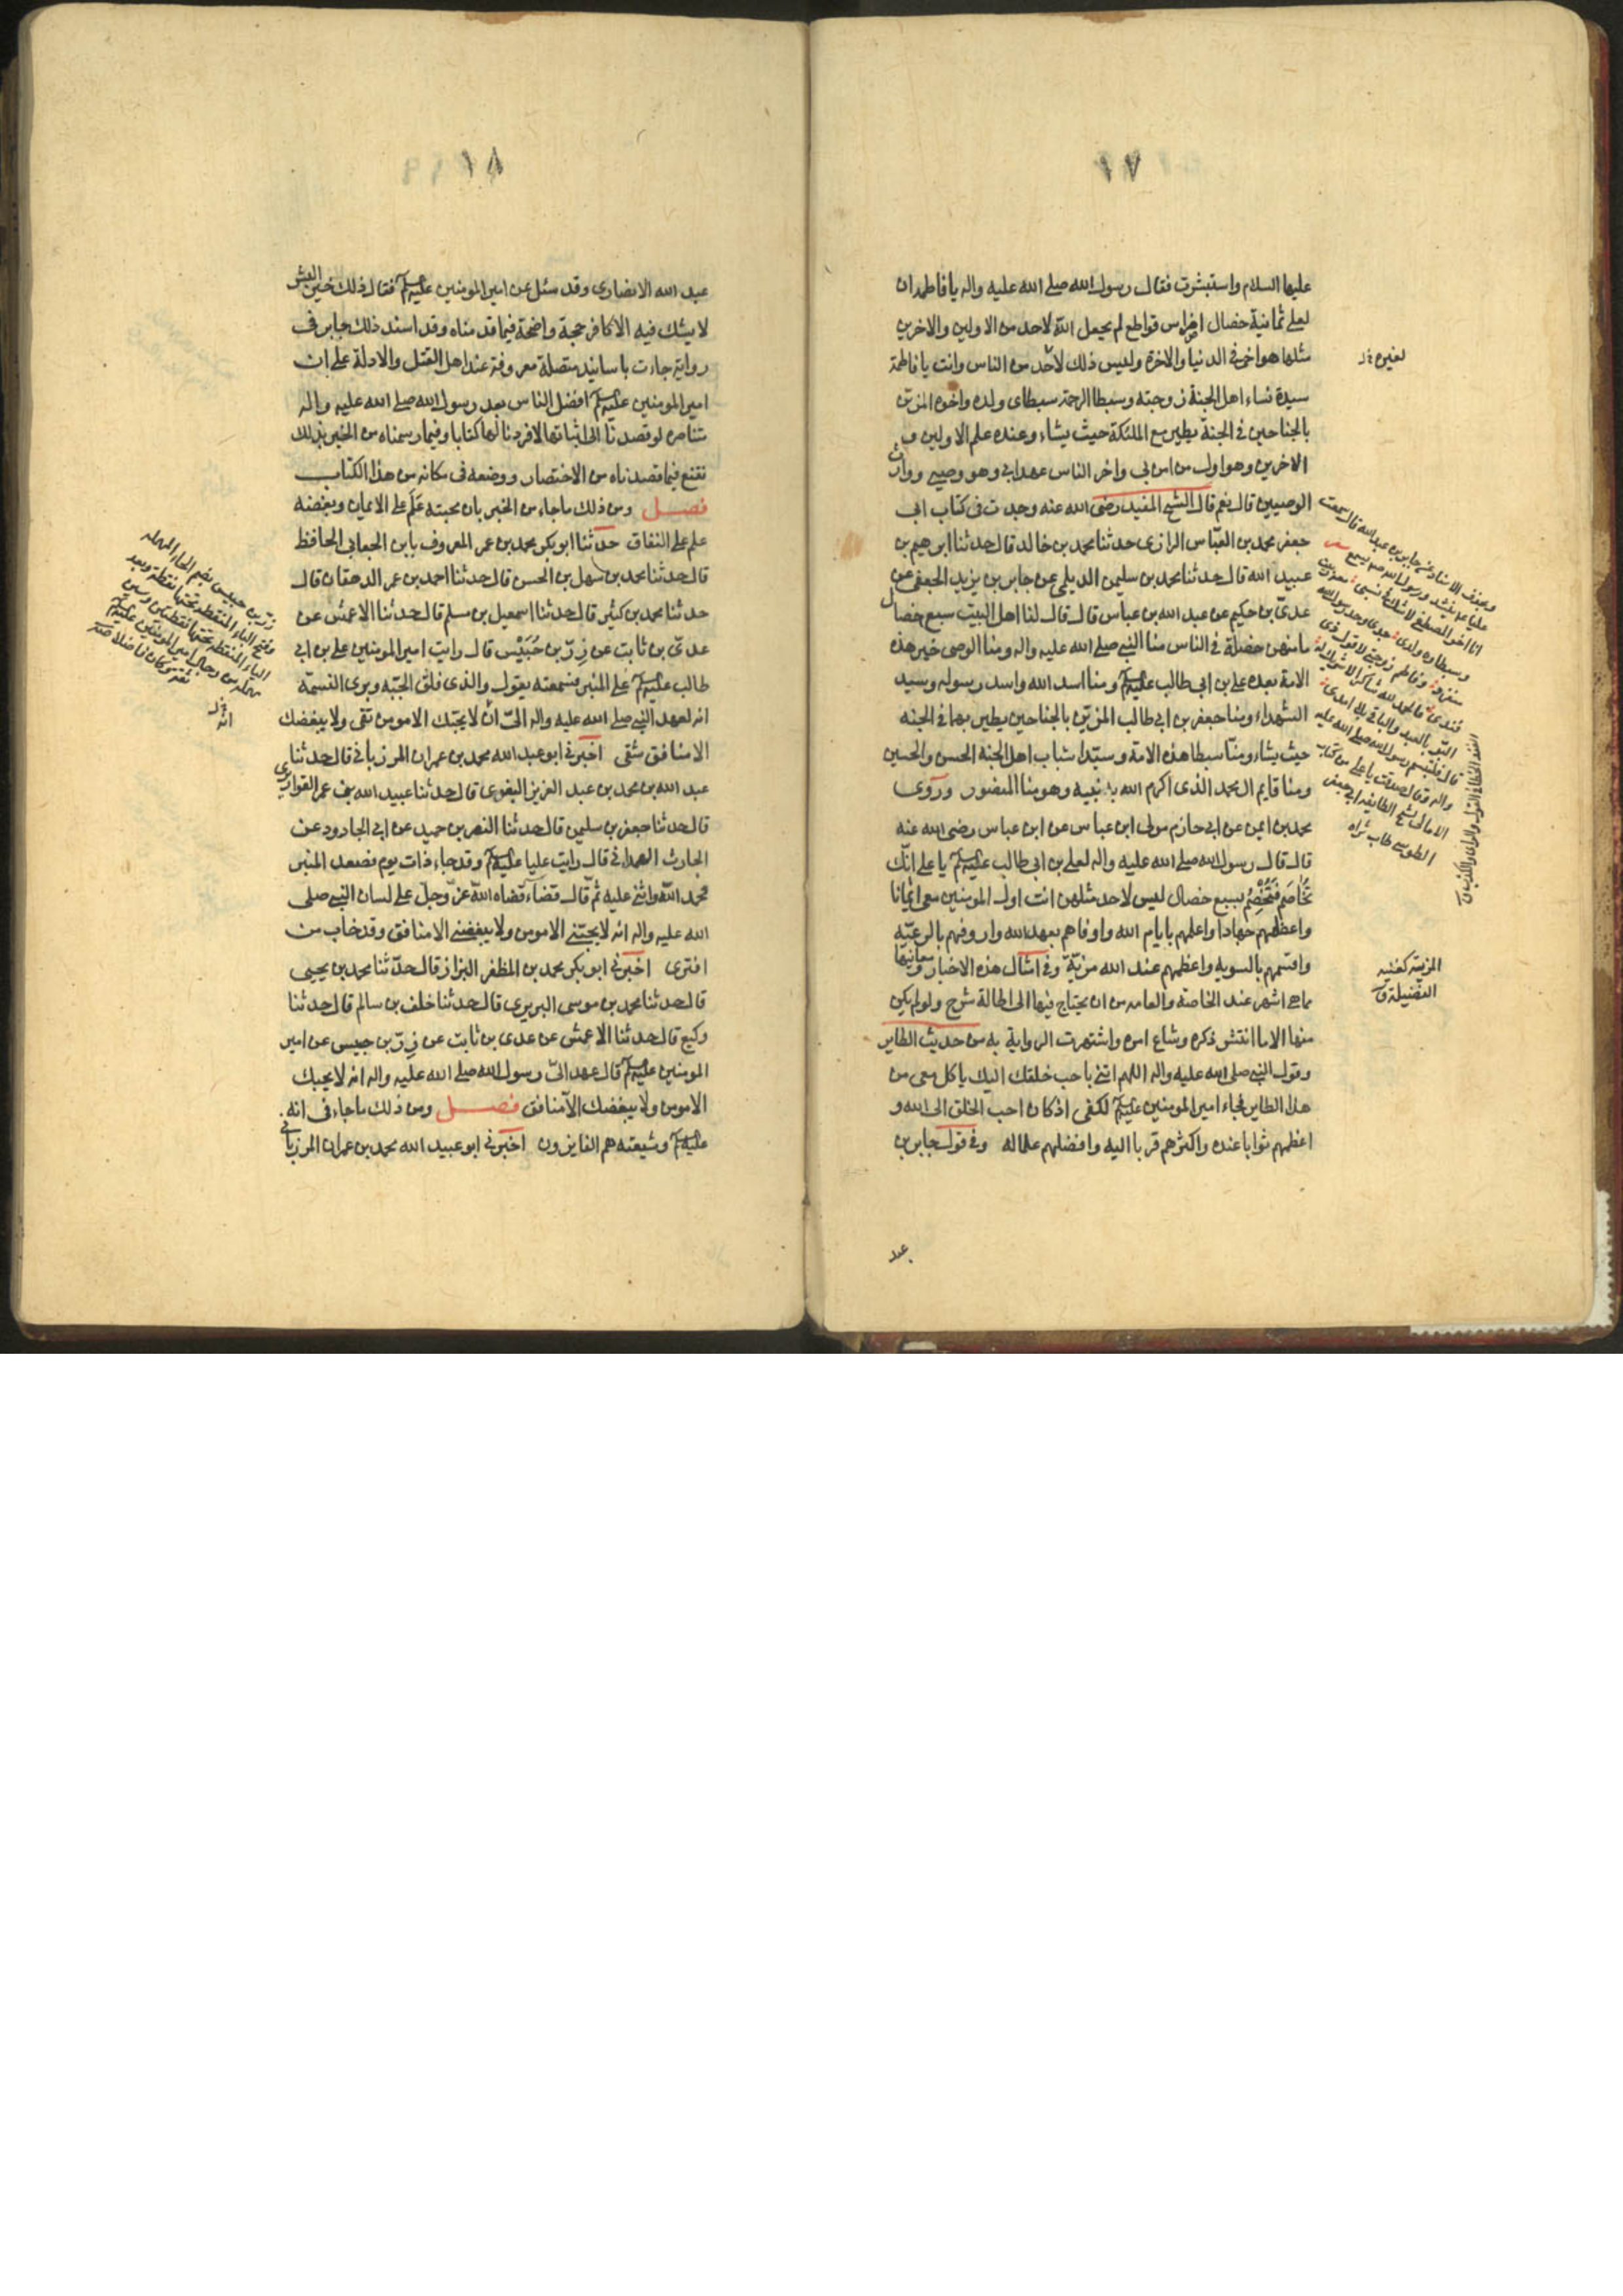 ١٧
عليها السلام واستبشرت فقال رسول الله صلى الله عليه واله يا فاطمه ان
لعلي ثمانية خصال اضراس قواطع لم يجعل الله لاحد من الاولين والاخرين
مثلها هو اخى فى الدنيا والاخرة وليس ذلك لاحد من الناس وانت يا فاطمة
سيدة نساء اهل الجنة زوجته وسبطا الرحمة سبطاى ولده واخوه المزين
بالجناحين فى الجنة يطير مع الملئكة حيث يشاء وعنده علم الاولين و
الاخرين وهو اول من امن بى واخر الناس عهدا بى وهو وصيى ووارث
الوصيين قال نعم قال الشيخ المفيد رضى الله عنه وجدت فى كتاب ابى
جعفر محمد بن العباس الرازى حدثنا محمد بن خالد قال حدثنا ابرهيم بن
عبيد الله قال حدثنا محمد بن سليمن الديلمى عن جابر بن يزيد الجعفى عن
عدى بن حكيم عن عبد الله بن عباس قال قال لنا اهل البيت سبع خصال
ما منهن خصلة فى الناس منا النبى صلى الله عليه واله ومنا الوصى خير هذه
الامة بعده على بن ابى طالب عليه السلم ومنا اسد الله واسد رسوله وسيد
الشهداء ومنا جعفر بن ابى طالب المزين بالجناحين يطير بهما فى الجنه
حيث يشاء ومنا سبطا هذه الامة وسيدا شباب اهل الجنة الحسن والحسين
ومنا قايم ال محمد الذى اكرم الله به نبيه وهو منا المنصور وروى
محمد بن ايمن عن ابى حازم مولى ابن عباس عن ابن عباس رضى الله عنه
قال قال رسول الله صلى الله عليه واله لعلى بن ابى طالب عليه السلم يا على انك
تخاصم فتخصم بسبع خصال ليس لاحد مثلهن انت اول المومنين معى ايمانا
واعظمهم جهادا واعلمهم بايام الله واوفاهم بعهد الله واروفهم بالرعيه
واقسمهم بالسويه واعظمهم عند الله مزية وفى امثال هذه الاخبار ومعانيها
مما هى اشهر عند الخاصة والعامه من ان يحتاج فيها الى اطالة شرح ولو لم يكن
منها الا ما انتشر ذكره وشاع امره واشتهرت الرواية به من حديث الطاير
وقول النبى صلى الله عليه واله اللهم ائتنى باحب خلقك اليك ياكل معى من
هذا الطاير فجاء امير المومنين عليه السلم لكفى اذ كان احب الخلق الى الله و
اعظمهم ثوابا عنده واكثرهم قربا اليه وافضلهم عملا له وفى قول جابر بن
عبد
المزية كغنيه
الفضيلة ق
١٨
عبد الله الانصارى وقد سئل عن امير المومنين عليه السلم فقال ذلك خير البشر
لا يشك فيه الا كافر حجة واضحة فيما قدمناه وقد اسند ذلك جابر فى
رواية جاءت باسانيد متصلة معروفة عند اهل النقل والادلة على ان
امير المومنين عليه السلم افضل الناس بعد رسول الله صلى الله عليه واله
متناصره لو قصدنا الى اثباتها لافردنا لها كتابا وفيما رسمناه من الخبر بذلك
نقنع فيما قصدناه من الاختصار ووضعه فى مكانه من هذا الكتاب
فصل ومن ذلك ما جاء من الخبر بان محبته علم على الايمان وبغضه
علم على النفاق حدثنا ابو بكر محمد بن عمر المعروف بابن الجعابى الحافظ
قال حدثنا محمد بن سهل بن الحسن قال حدثنا احمد بن عمر الدهقان قال
حدثنا محمد بن كثير قال حدثنا اسمعيل بن مسلم قال حدثنا الاعمش عن
عدى بن ثابت عن زر بن حبيس قال رايت امير المومنين على بن ابى
طالب عليه السلم على المنبر فسمعته يقول والذى فلق الحبه وبرى النسمة
انه لعهد النبى صلى الله عليه واله الى ان لا يحبك الا مومن تقى ولا يبغضك
الا منافق شقى اخبرنى ابو عبد الله محمد بن عمران المرزبانى قال حدثنا
عبد الله بن محمد بن عبد العزيز البغوى قال حدثنا عبيد الله بن عمر القواريرى
قال حدثنا جعفر بن سليمن قال حدثنا النضر بن حميد عن ابى الجارود عن
الحارث الهمدانى قال رايت عليا عليه السلم وقد جاء ذات يوم فصعد المنبر
فحمد الله واثنى عليه ثم قال قضاء قضاه الله عز وجل على لسان النبى صلى
الله عليه واله انه لا يحبنى الا مومن ولا يبغضنى الا منافق وقد خاب من
افترى اخبرنى ابو بكر محمد بن المظفر البزاز قال حدثنا محمد بن يحيى
قال حدثنا محمد بن موسى البربرى قال حدثنا خلف بن سالم قال حدثنا
وكيع قال حدثنا الاعمش عن عدى بن ثابت عن زر بن حبيس عن امير
المومنين عليه السلم قال عهد الى رسول الله صلى الله عليه واله انه لا يحبك
الا مومن ولا يبغضك الا منافق فصل ومن ذلك ما جاء فى انه
عليه السلم وشيعته هم الفايزون اخبرنى ابو عبيد الله محمد بن عمران المرزبانى
زر بن حبيس بضم الحاء المهمله
وفتح الباء المنقطة تحتها نقطة وبعد
الياء المنقطة تحتها نقطتين وسين
مهمله من رجال امير المومنين عليه السلم
ثقته وكان فاضلا